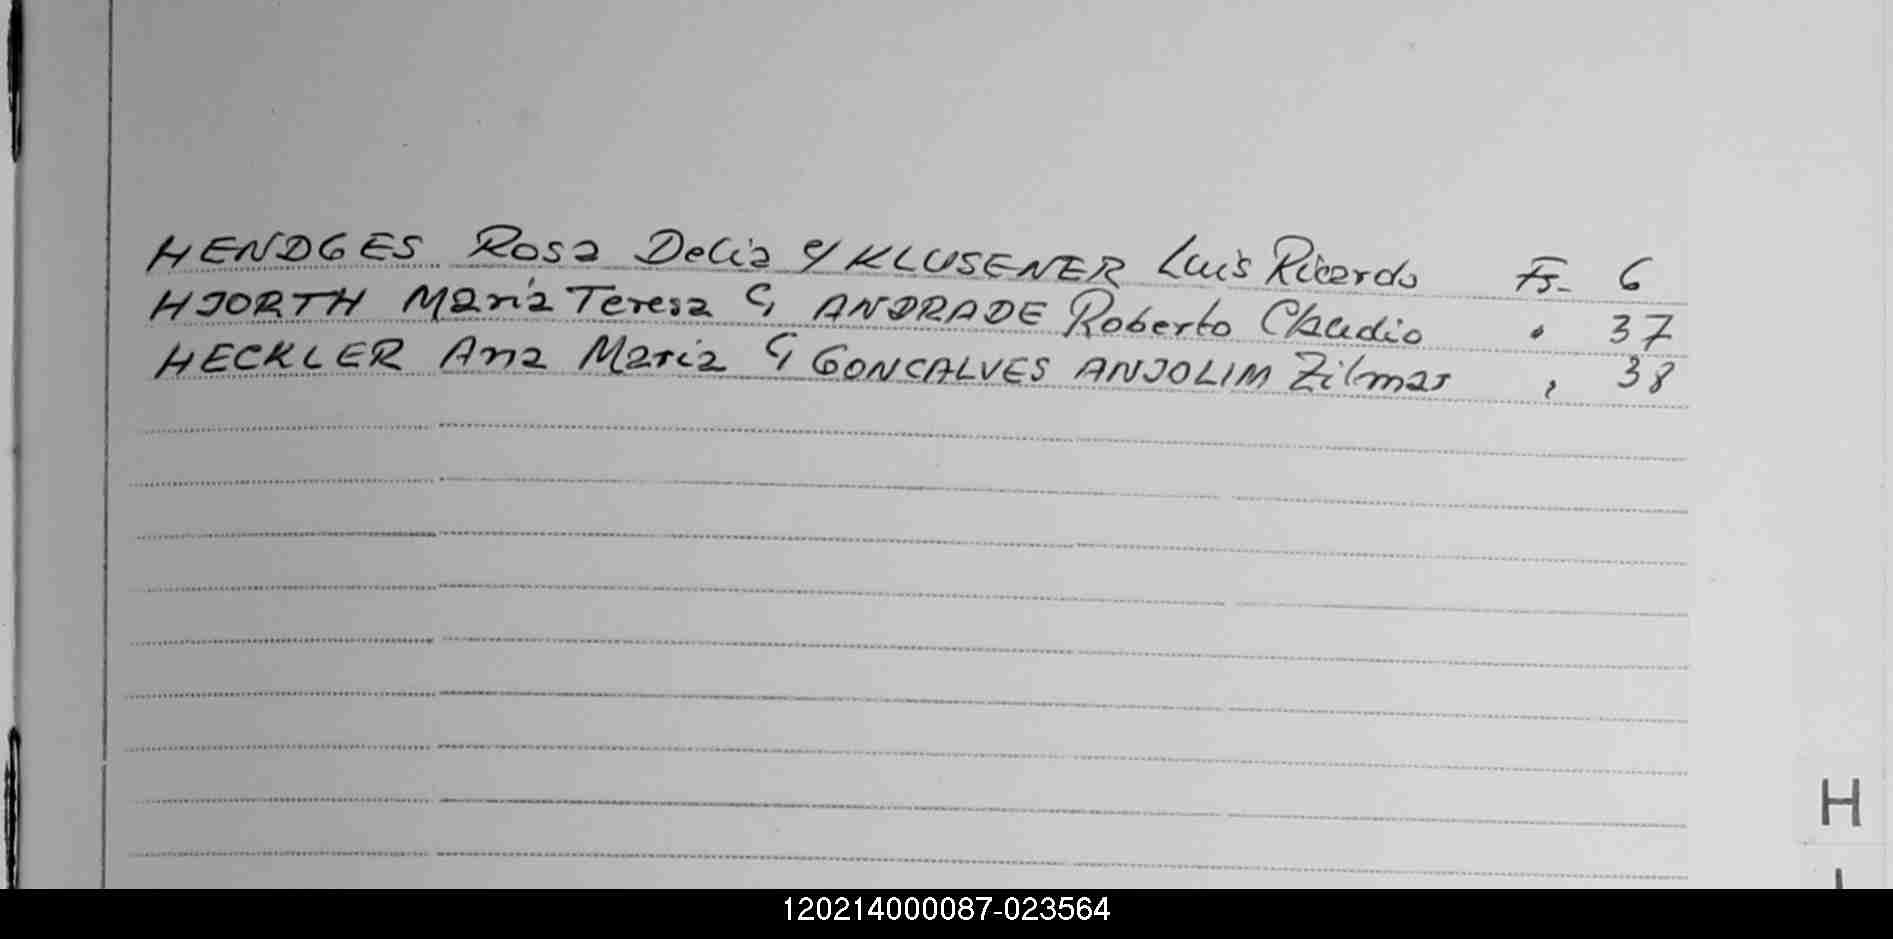 HENDGES Rosa Delia c/ KLUSENER Luis Ricardo Fs. 6
HJORTH María Teresa c/ ANDRADE Roberto Claudio " 37
HECKLER Ana María c/ GONCALVES ANJOLIM Zilmar " 38
H
I
120214000087-023564